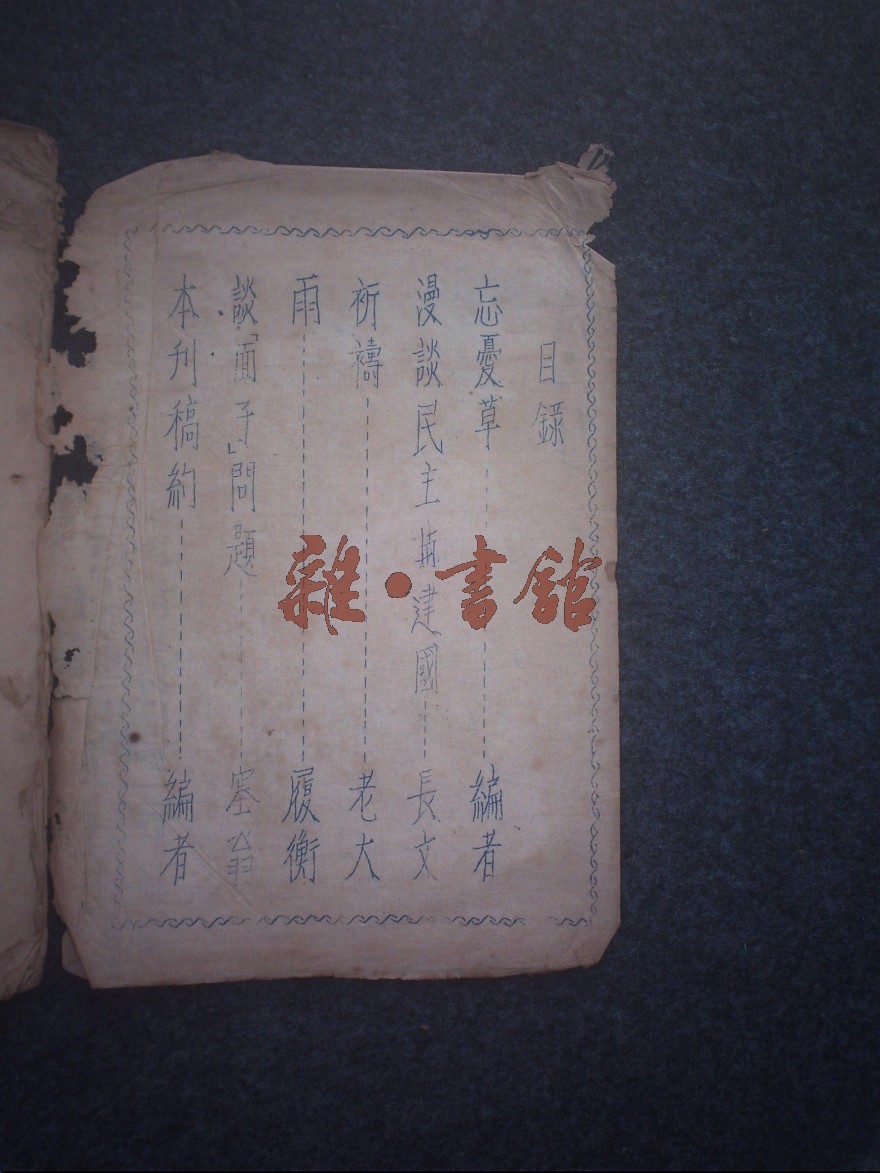 目錄
忘憂草------編者
漫談民主與建國------長文
祈禱------老大
雨------履衡
談「面子」問題------塞翁
本刋稿約------編者
雜·書舘